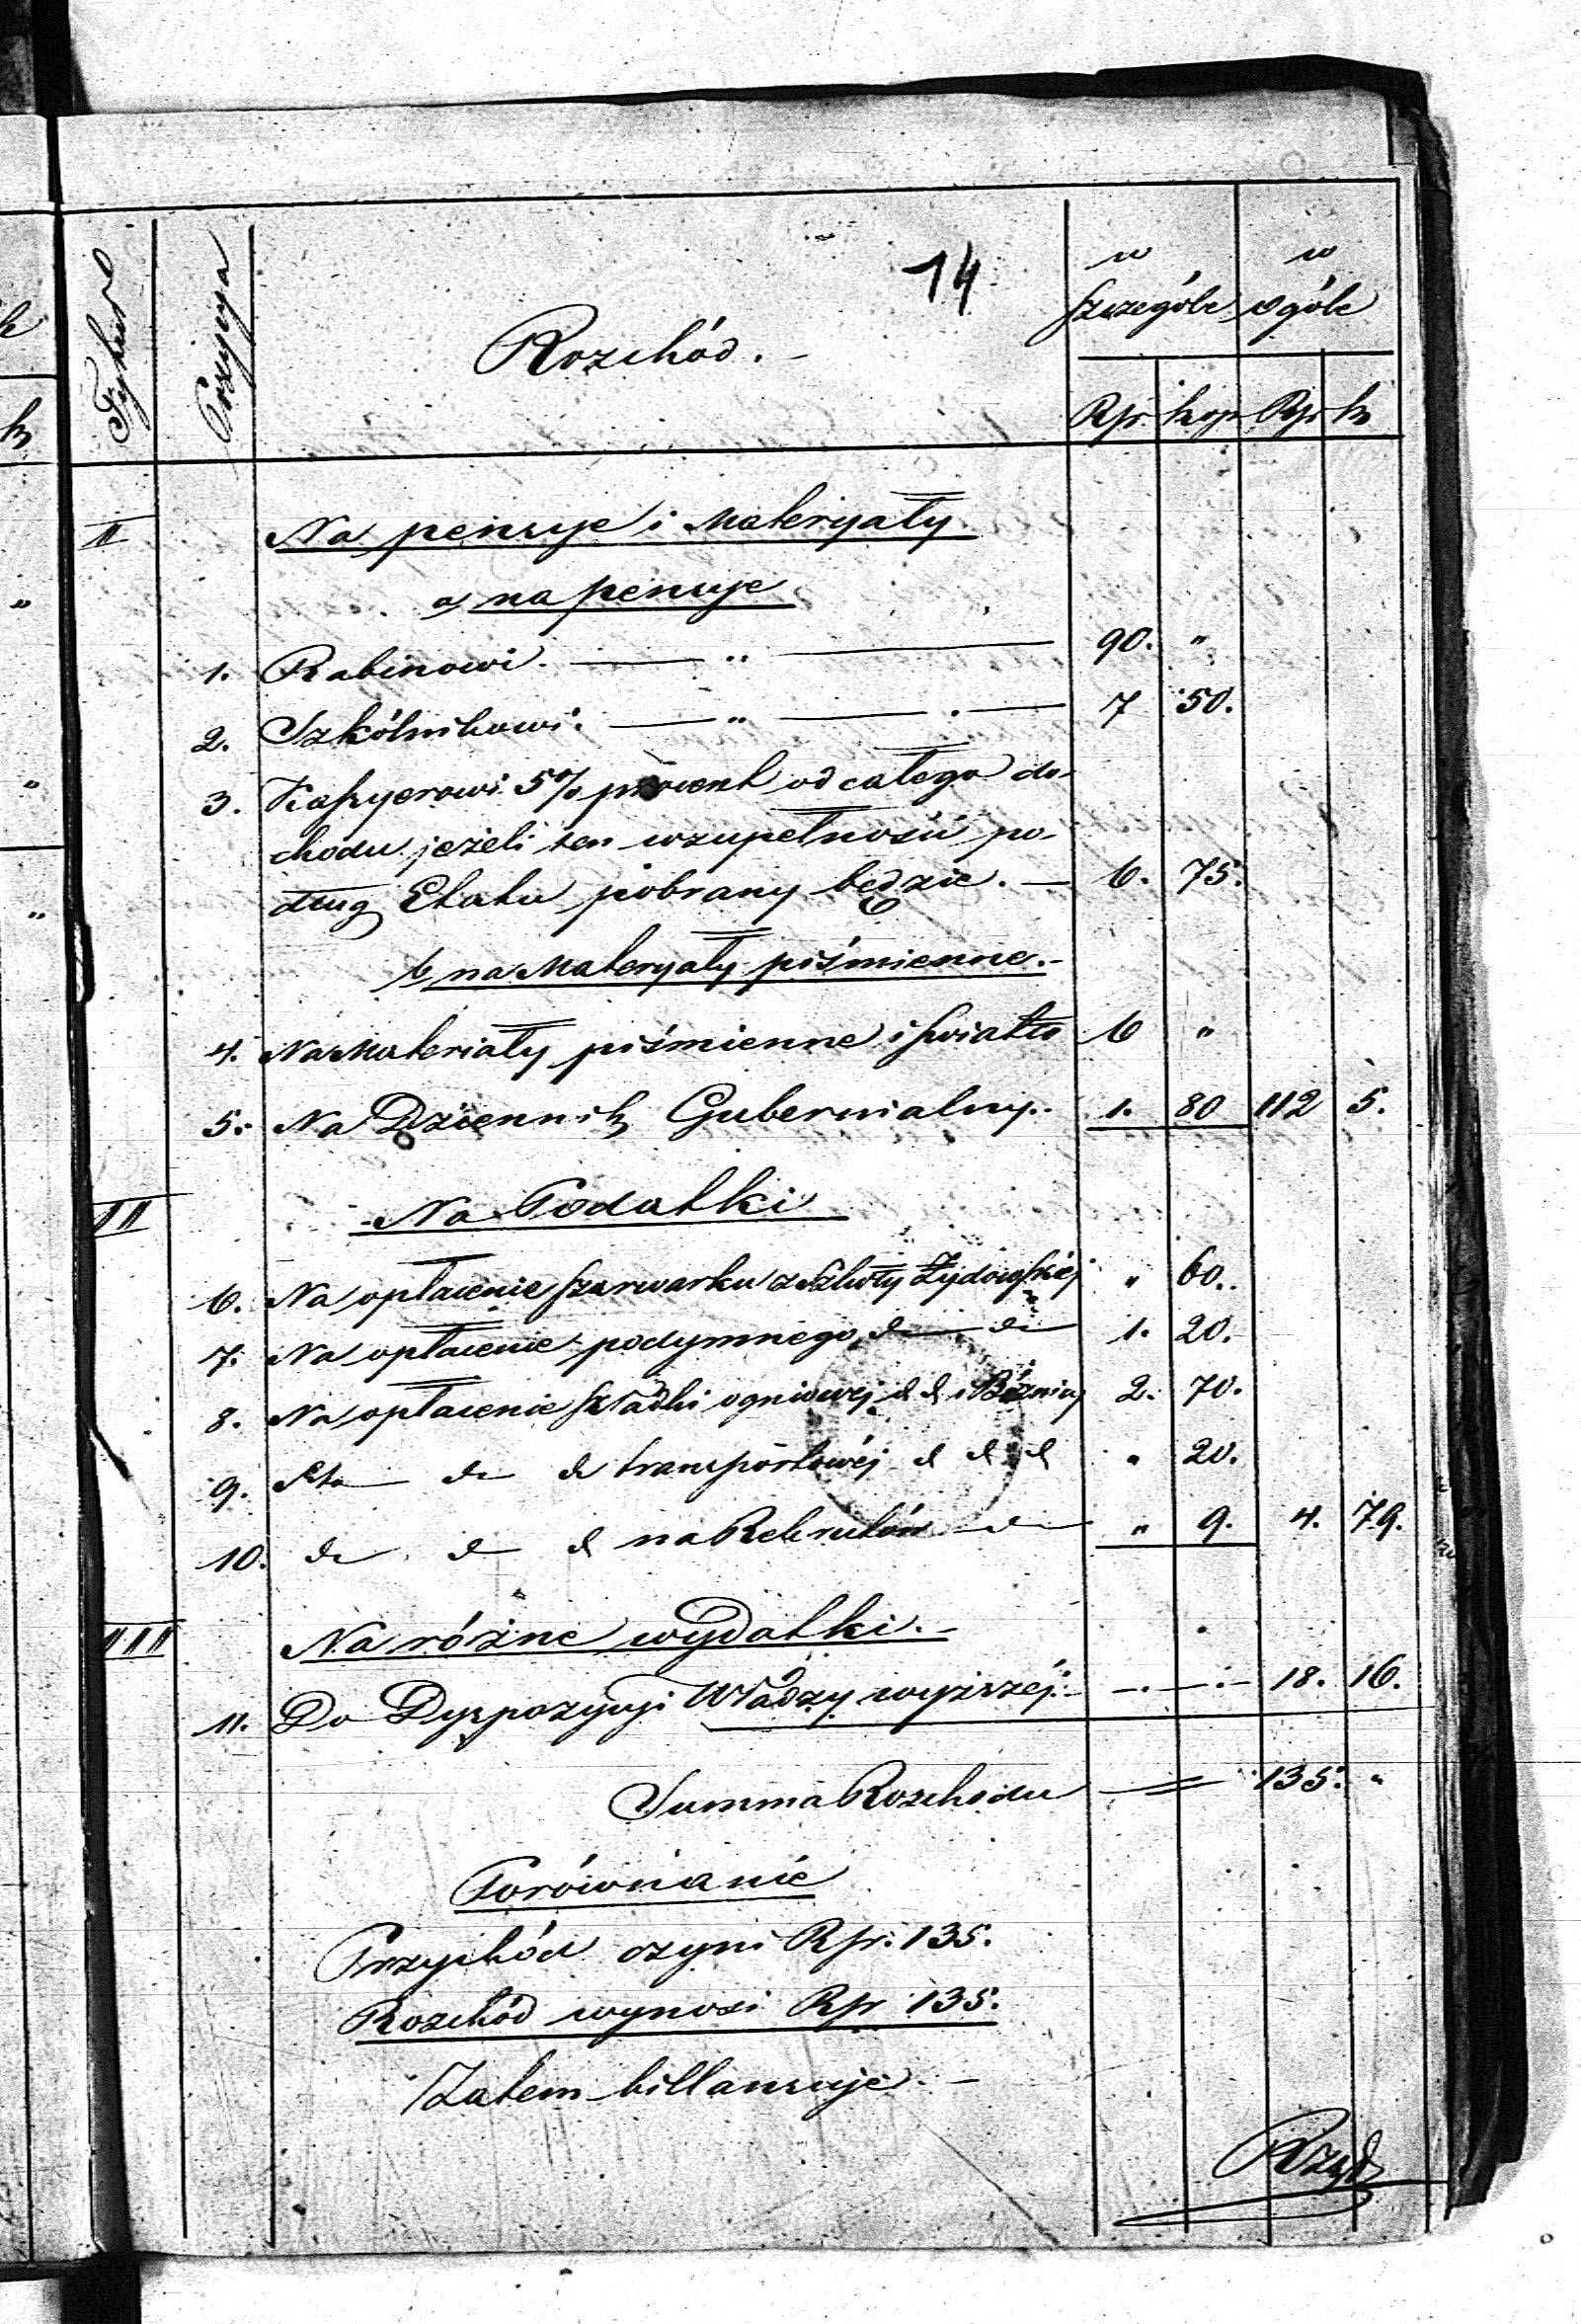 14
Tytuł Pozycya Rozchód. w szczególe w ogóle
Rsr. kop. Rsr k
II Na pensye i Materyały
a, na pensye
1. Rabinowi. — „ — 90. „
2. Szkólnikowi. — „ — . — 7 50.
3. Kassyerowi 5% procent od całego do-
chodu jeżeli ten wzupełności po-
dług Etatu pobrany będzie. — 6. 75.
b, na Materyały piśmienne.-
4. Na Materiały piśmienne i światło 6 „
5. Na Dziennik Gubernialny. 1. 80 112 5.
II Na Podatki
6. Na opłacenie szarwarku z Szkoły Żydowskiéj „ 60.
7. Na opłacenie podymnego do do 1. 20.
8. Na opłacenie składki ogniowej d d i Bóżnicy 2. 70.
9. dto do do transportowéj d d d „ 20.
10. do do d na Rekrutów do „ 9. 4. 79.
III Na różne wydatki.-
11. Do Dyspozycyi Władzy wyższéj.- —.—.— 18. 16.
Summa Rozchodu 135. „
Porównanie
Przychód czyni Rsr. 135.
Rozchód wynosi Rsr 135.
Zatem billansuje. -